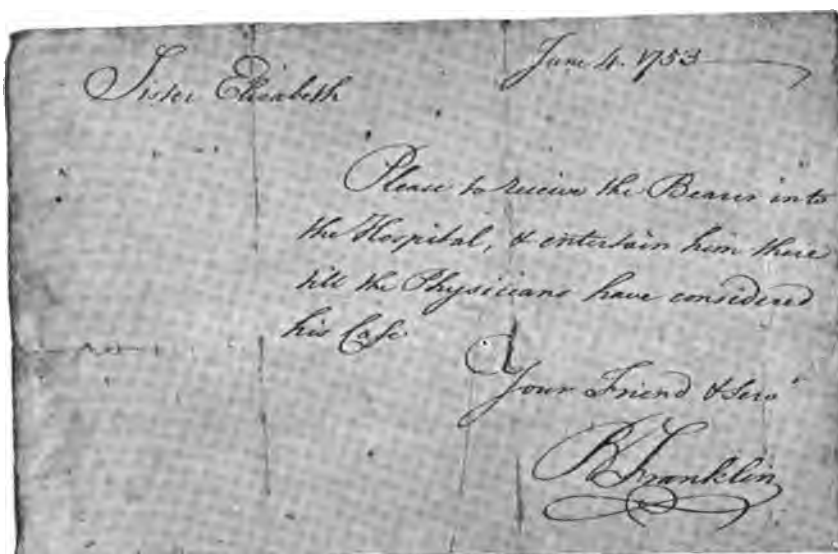 June 4. 1753
Sister Elizabeth
Please to receive the Bearer into
the Hospital, & entertain him there
till the Physicians have considered
his Case.
Your Friend & Servt
B Franklin